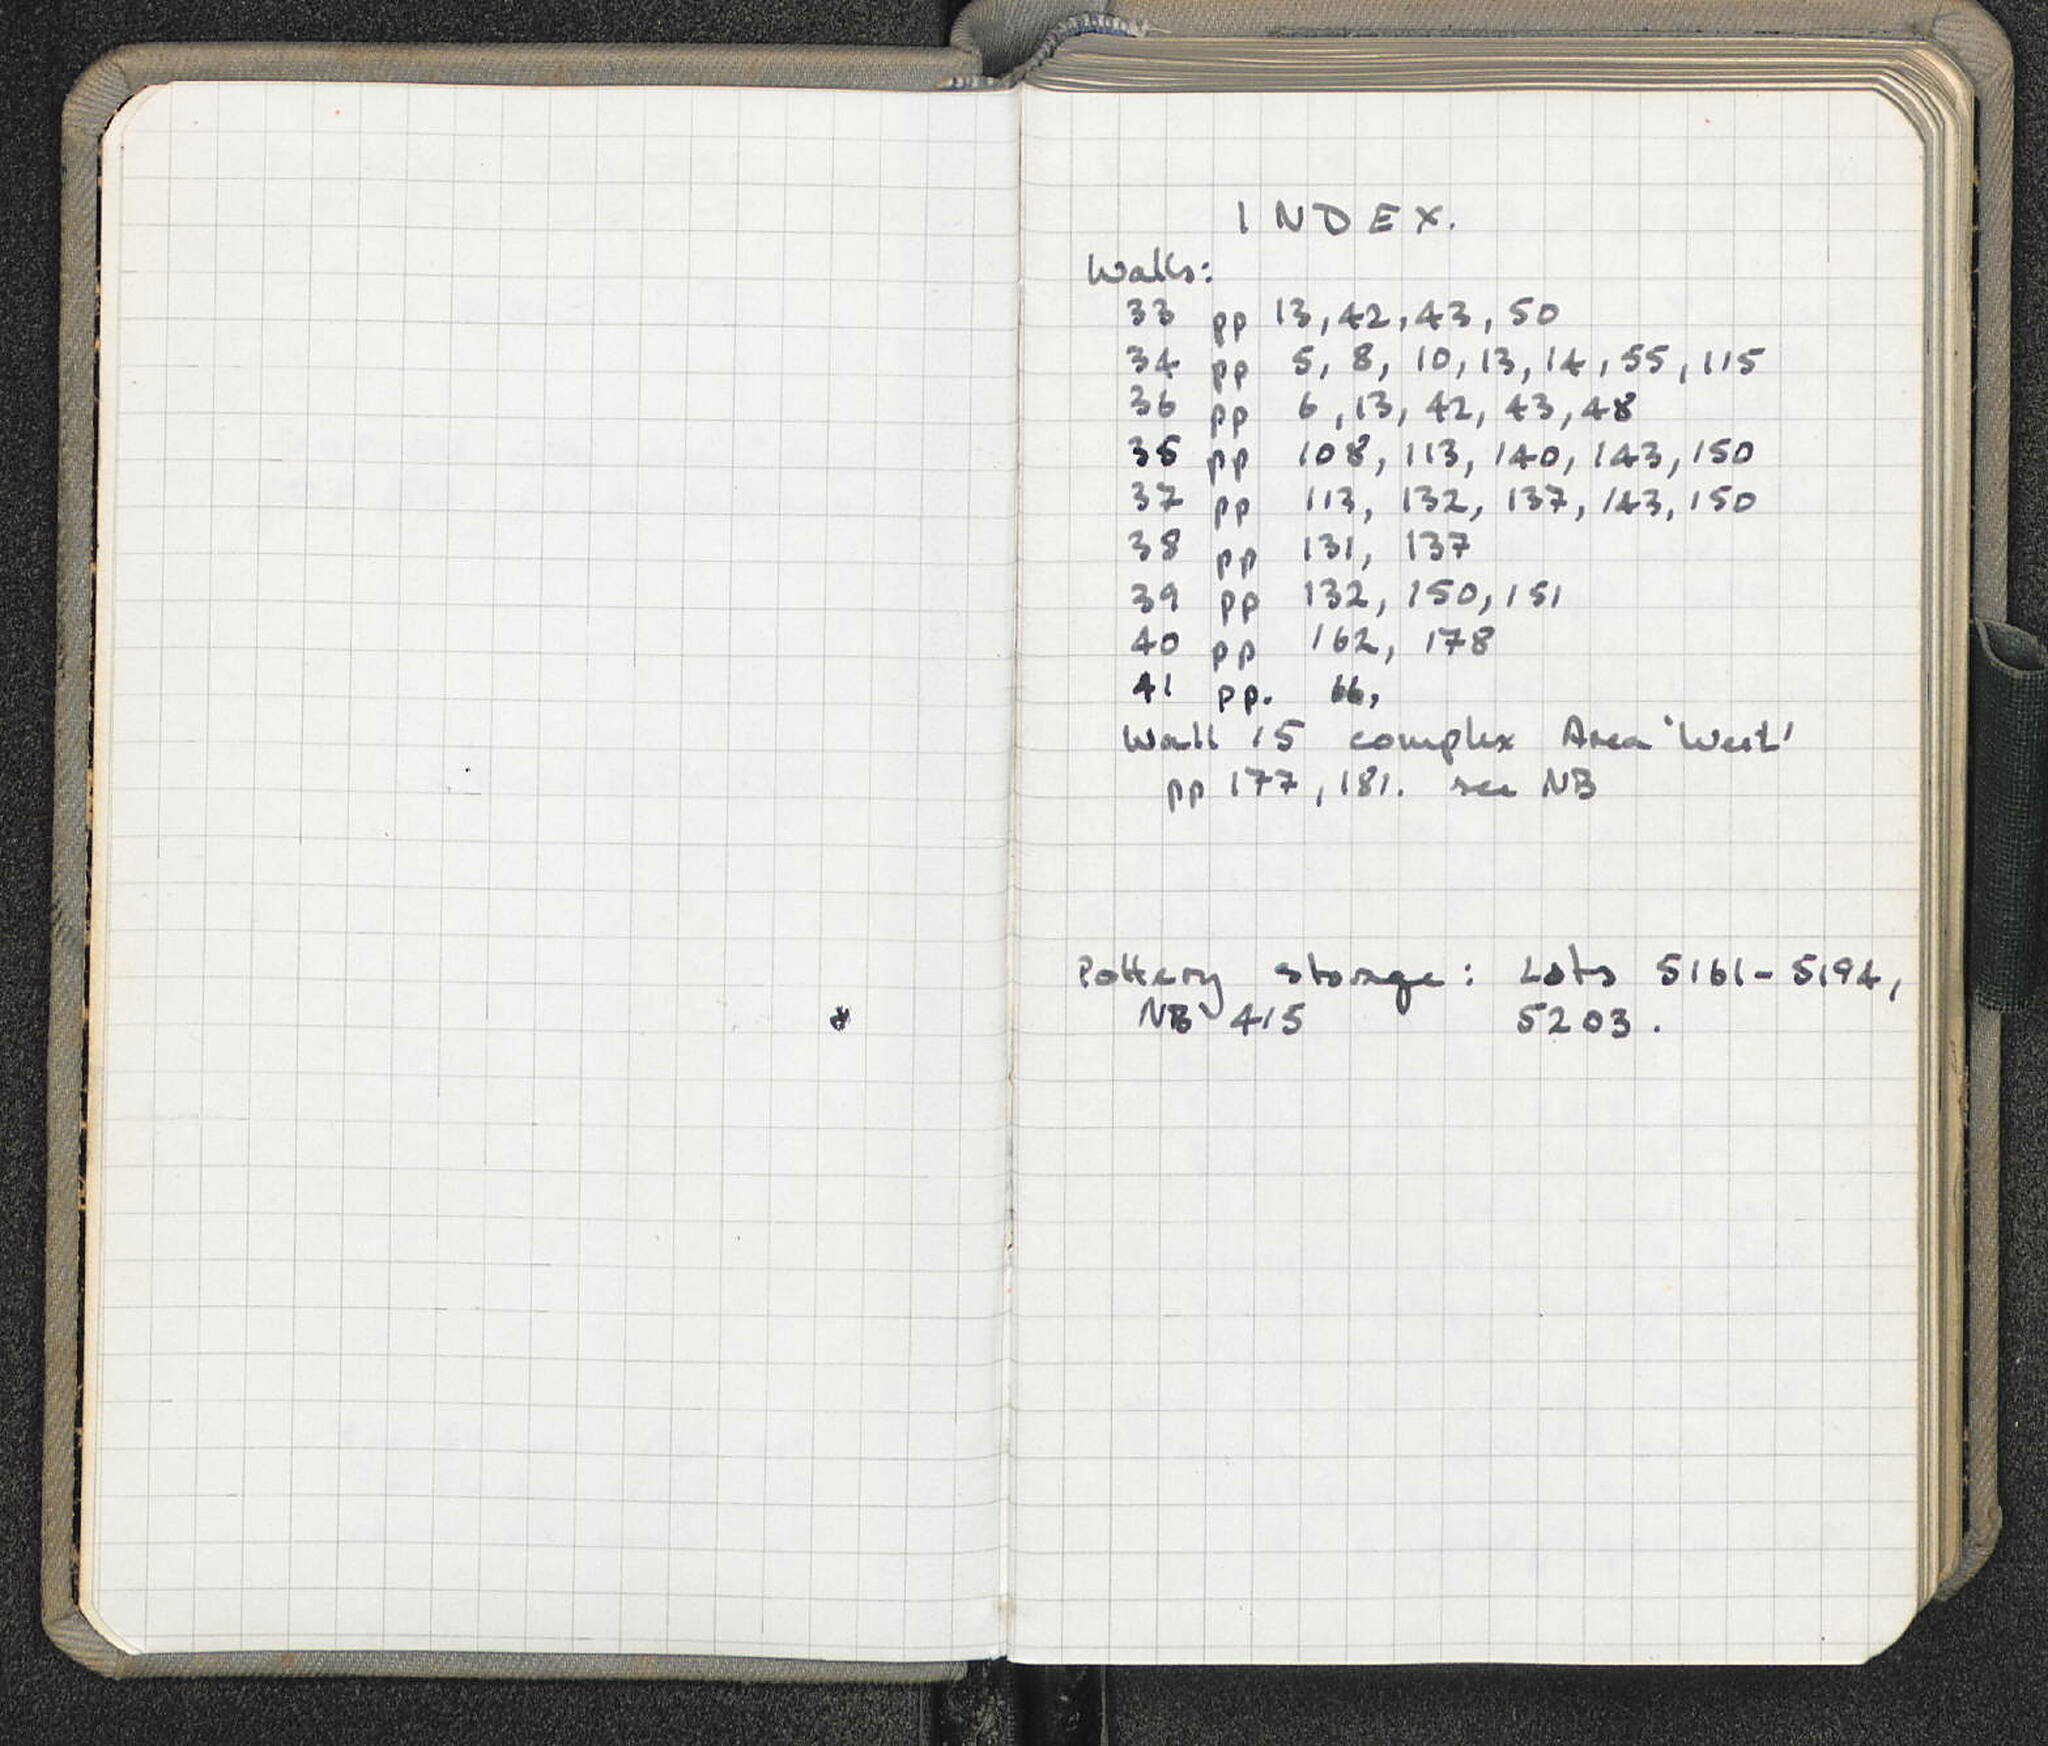 INDEX.
Walls:
33 pp 13, 42, 43, 50
34 pp 5, 8, 10, 13, 14, 55, 115
36 pp 6, 13, 42, 43, 48
35 pp 108, 113, 140, 143, 150
37 pp 113, 132, 137, 143, 150
38 pp 131, 137
39 pp 132, 150, 151
40 pp 162, 178
41 pp. 66,
Wall 15 complex Area 'West'
pp 177, 181. see NB
Pottery storage: Lots 5161-5194,
NB 415 5203.